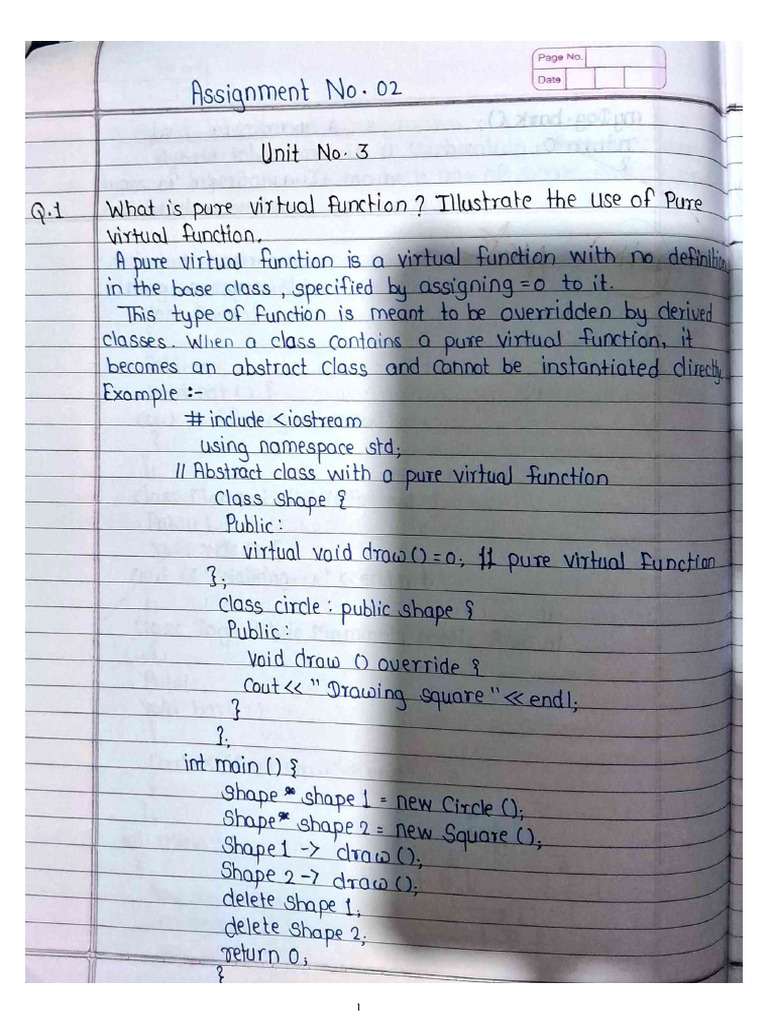 Page No.
Date
Assignment No. 02
Unit No. 3
Q.1 What is pure virtual function? Illustrate the use of Pure
virtual function.
A pure virtual function is a virtual function with no definition
in the base class, specified by assigning =0 to it.
This type of function is meant to be overridden by derived
classes. When a class contains a pure virtual function, it
becomes an abstract class and cannot be instantiated directly
Example :-
# include <iostream
using namespace std;
// Abstract class with a pure virtual function
Class shape {
Public:
virtual void draw()=0; // pure virtual Function
};
Class circle : public shape {
Public:
void draw () override {
Cout<< "Drawing square"<< endl;
}
};
int main () {
Shape* shape 1 = new Circle ();
Shape* shape 2 = new Square ();
Shape 1 -> draw ();
Shape 2 -> draw ();
delete shape 1;
delete shape 2;
return 0;
}
1